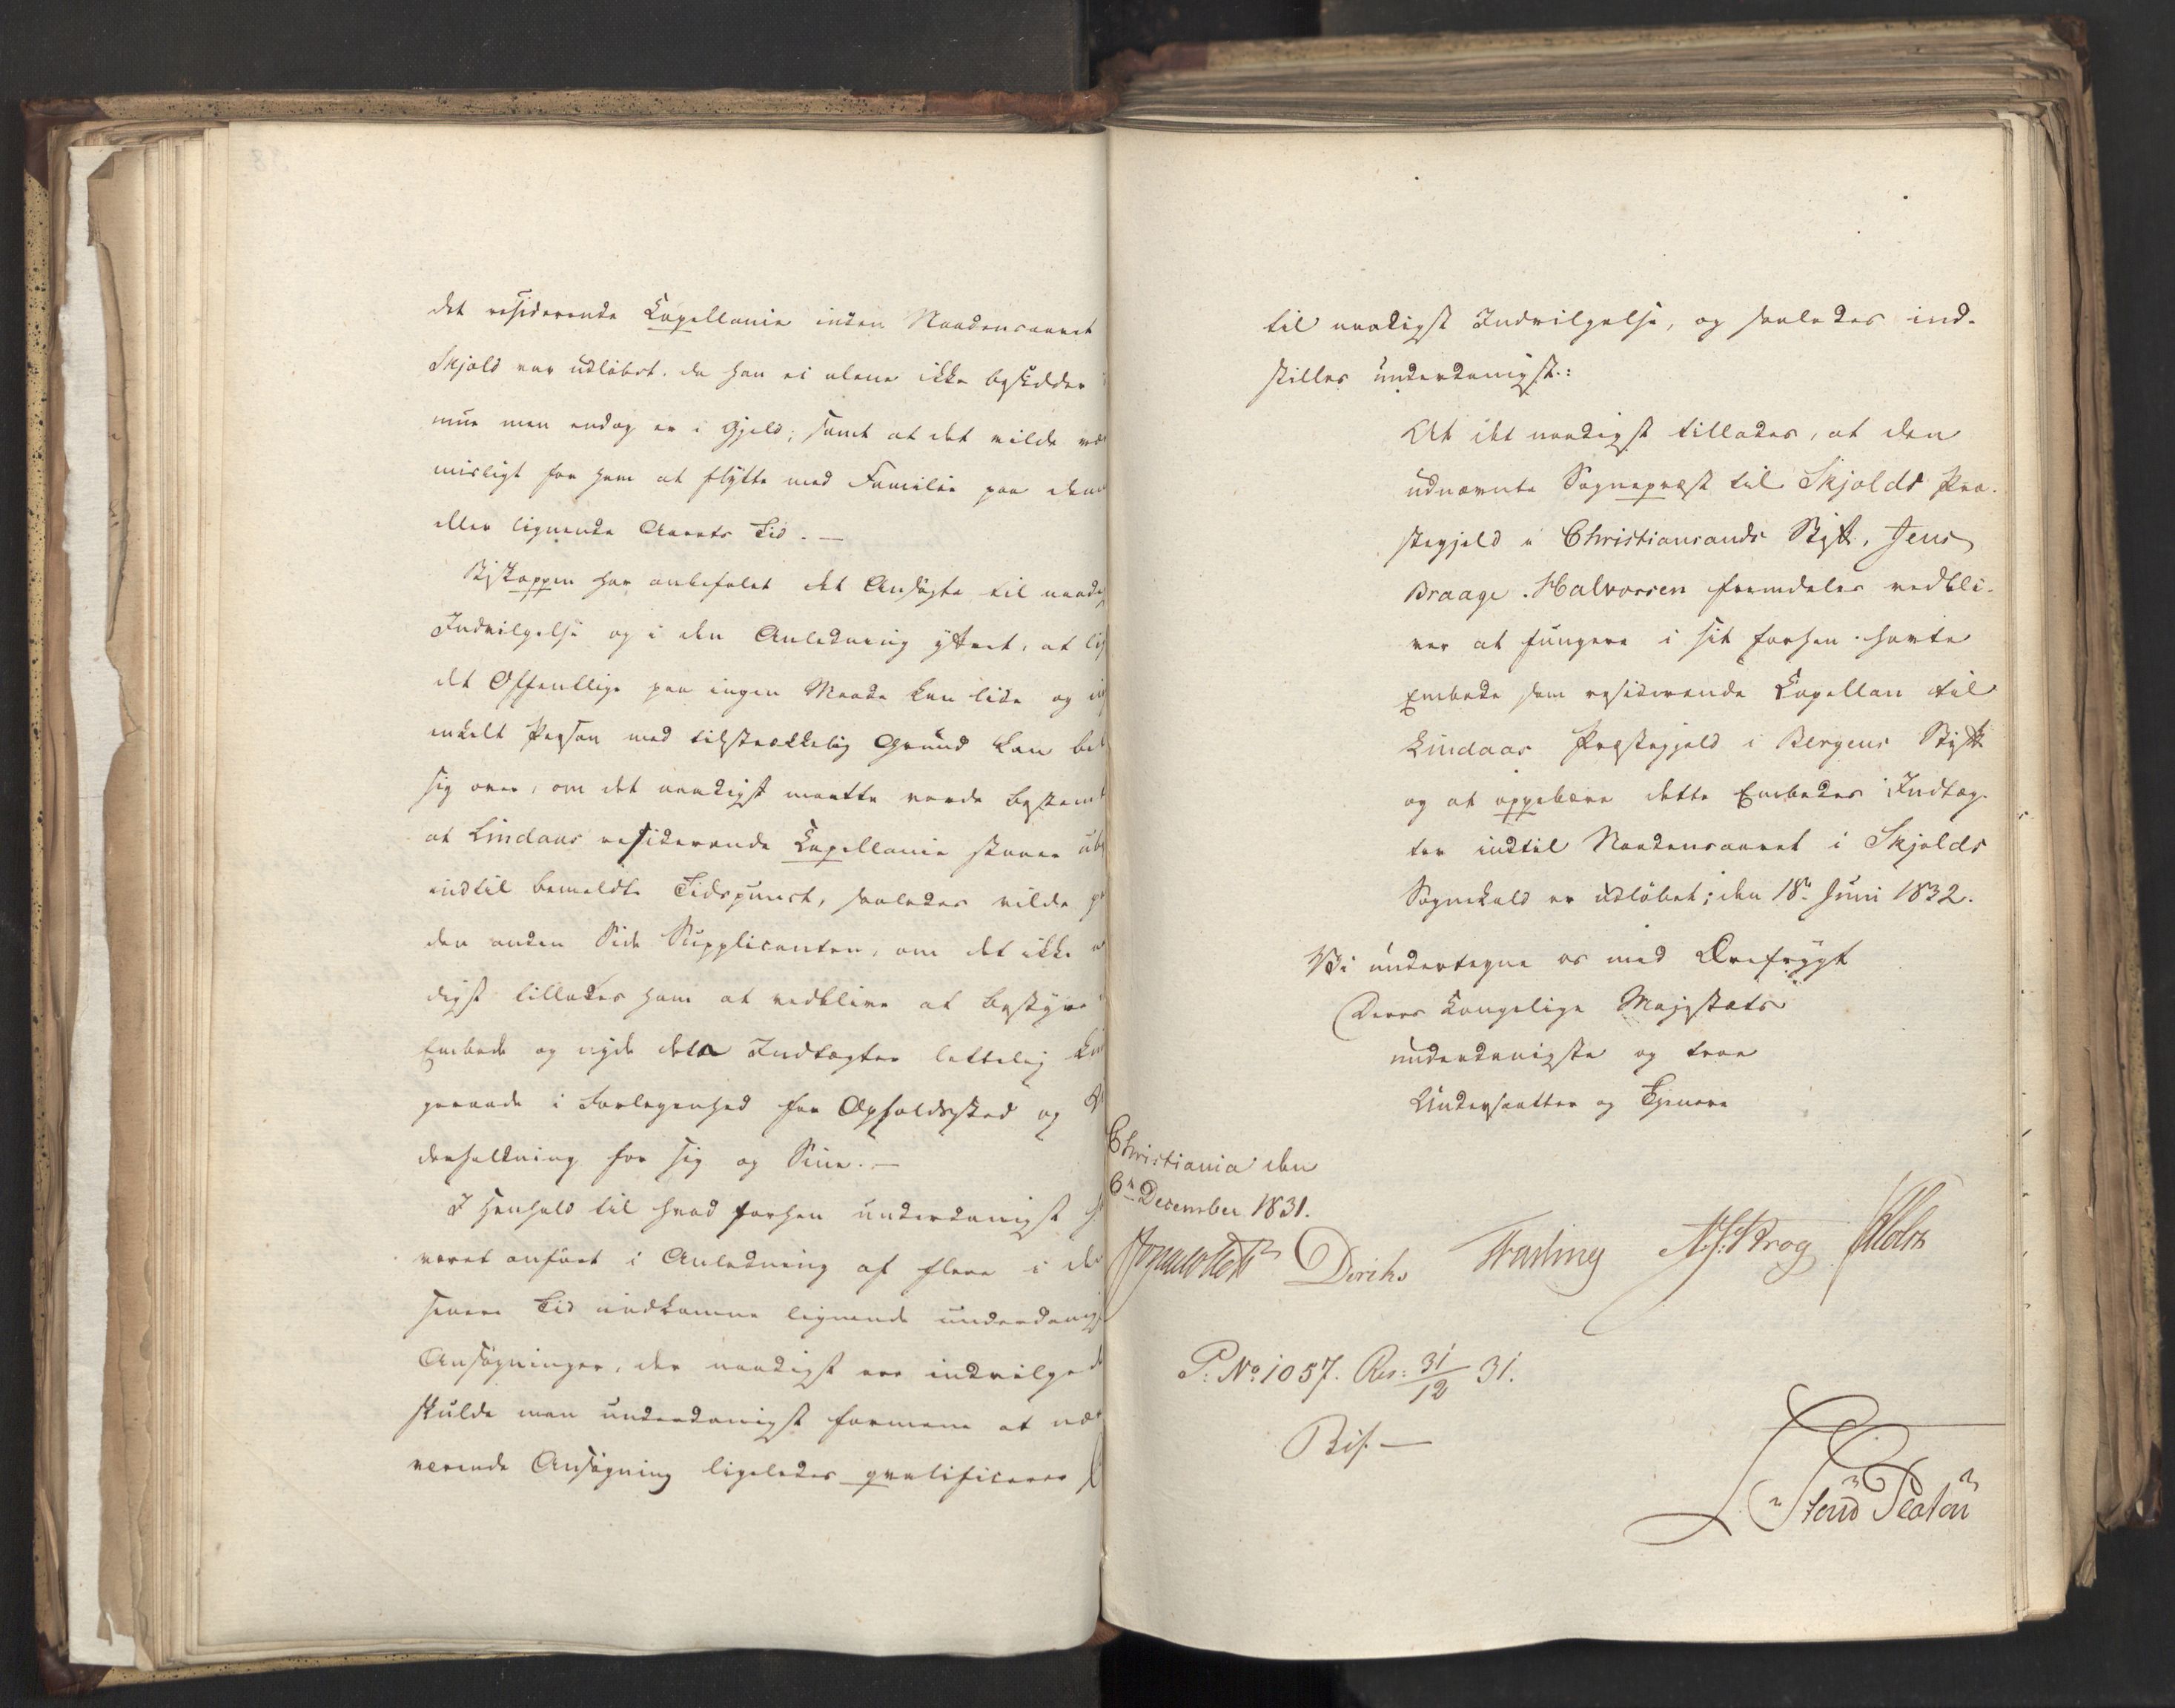 det residerende Capellanie inden Naadensaaret
Skjold var udløbet, da han ei alene ikke besidder
mue men endog er i Gjeld; samt at det vilde væ
misligt for ham at flytte med Familie paa denne
eller lignende Aarets Tid. —
Biskoppen har anbefalet det Ansøgte til naadig
Indvilgelse og i den Anledning yttret, at lig
det Offentlige paa ingen Maade kan lide og in
enkelt Person med tilstrækkelig Grund kan bek
sig over, om det naadigst maatte vorde bestemt
at Lindaas residerende Capellanie staaer ube
indtil bemeldte Tidspunct, saaledes vilde pa
den anden Side Supplicanten, om det ikke n
digst tillades ham at vedblive at bestyre
Embede og nyde dets Indtægter lettelig kun
geraade i Forlegenhed for Opholdssted og U
derholdning for sig og Sine. —
I Henhold til hvad forhen underdanigst h
været anført i Anledning af flere i de
senere Tid indkomne lignende underdanig
Ansøgninger, der naadigst ere indvilgede
skulde man underdanigst formene at næ
værende Ansøgning ligeledes qvalificerer s
til naadigst Indvilgelse, og saaledes ind-
stilles underdanigst:
At det naadigst tillades, at den
udnævnte Sognepræst til Skjolds Præ-
stegjeld i Christiansands Stift, Jens
Braage Halvorsen fremdeles vedbli-
ver at fungere i sit forhen havte
Embede som residerende Capellan til
Lindaas Præstegjeld i Bergens Stift
og at oppebære dette Embedes Indtæg-
ter indtil Naadensaaret i Skjolds
Sognekald er udløbet; den 18de Juni 1832.
Vi undertegne os med Ærefrygt
Deres Kongelige Majestæts
underdanigste og troe
Undersaatter og Tjenere
Christiania den
6te December 1831.
Diriks Fasting Krog Holst
P: No 1057. Res: 31/12 31.
Bif. —